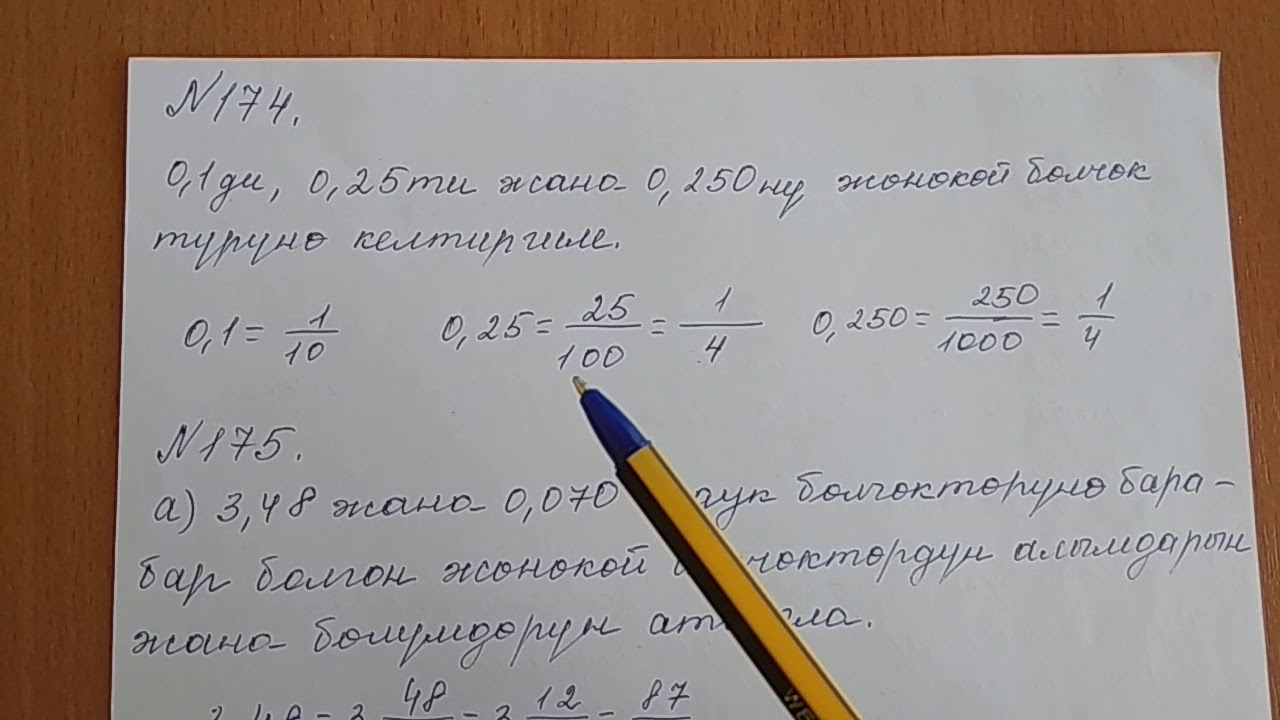 №174.
0,1ди, 0,25ти жана 0,250ну жонокой болчок
туруно келтиргиле.
0,1 = 1/10 0,25 = 25/100 = 1/4 0,250 = 250/1000 = 1/4
№175.
а) 3,48 жана 0,070 болчокторуно бара-
бар болгон жонокой алымдарын
жана болумдорун
3,48 = 3 48 = 3 12 = 87